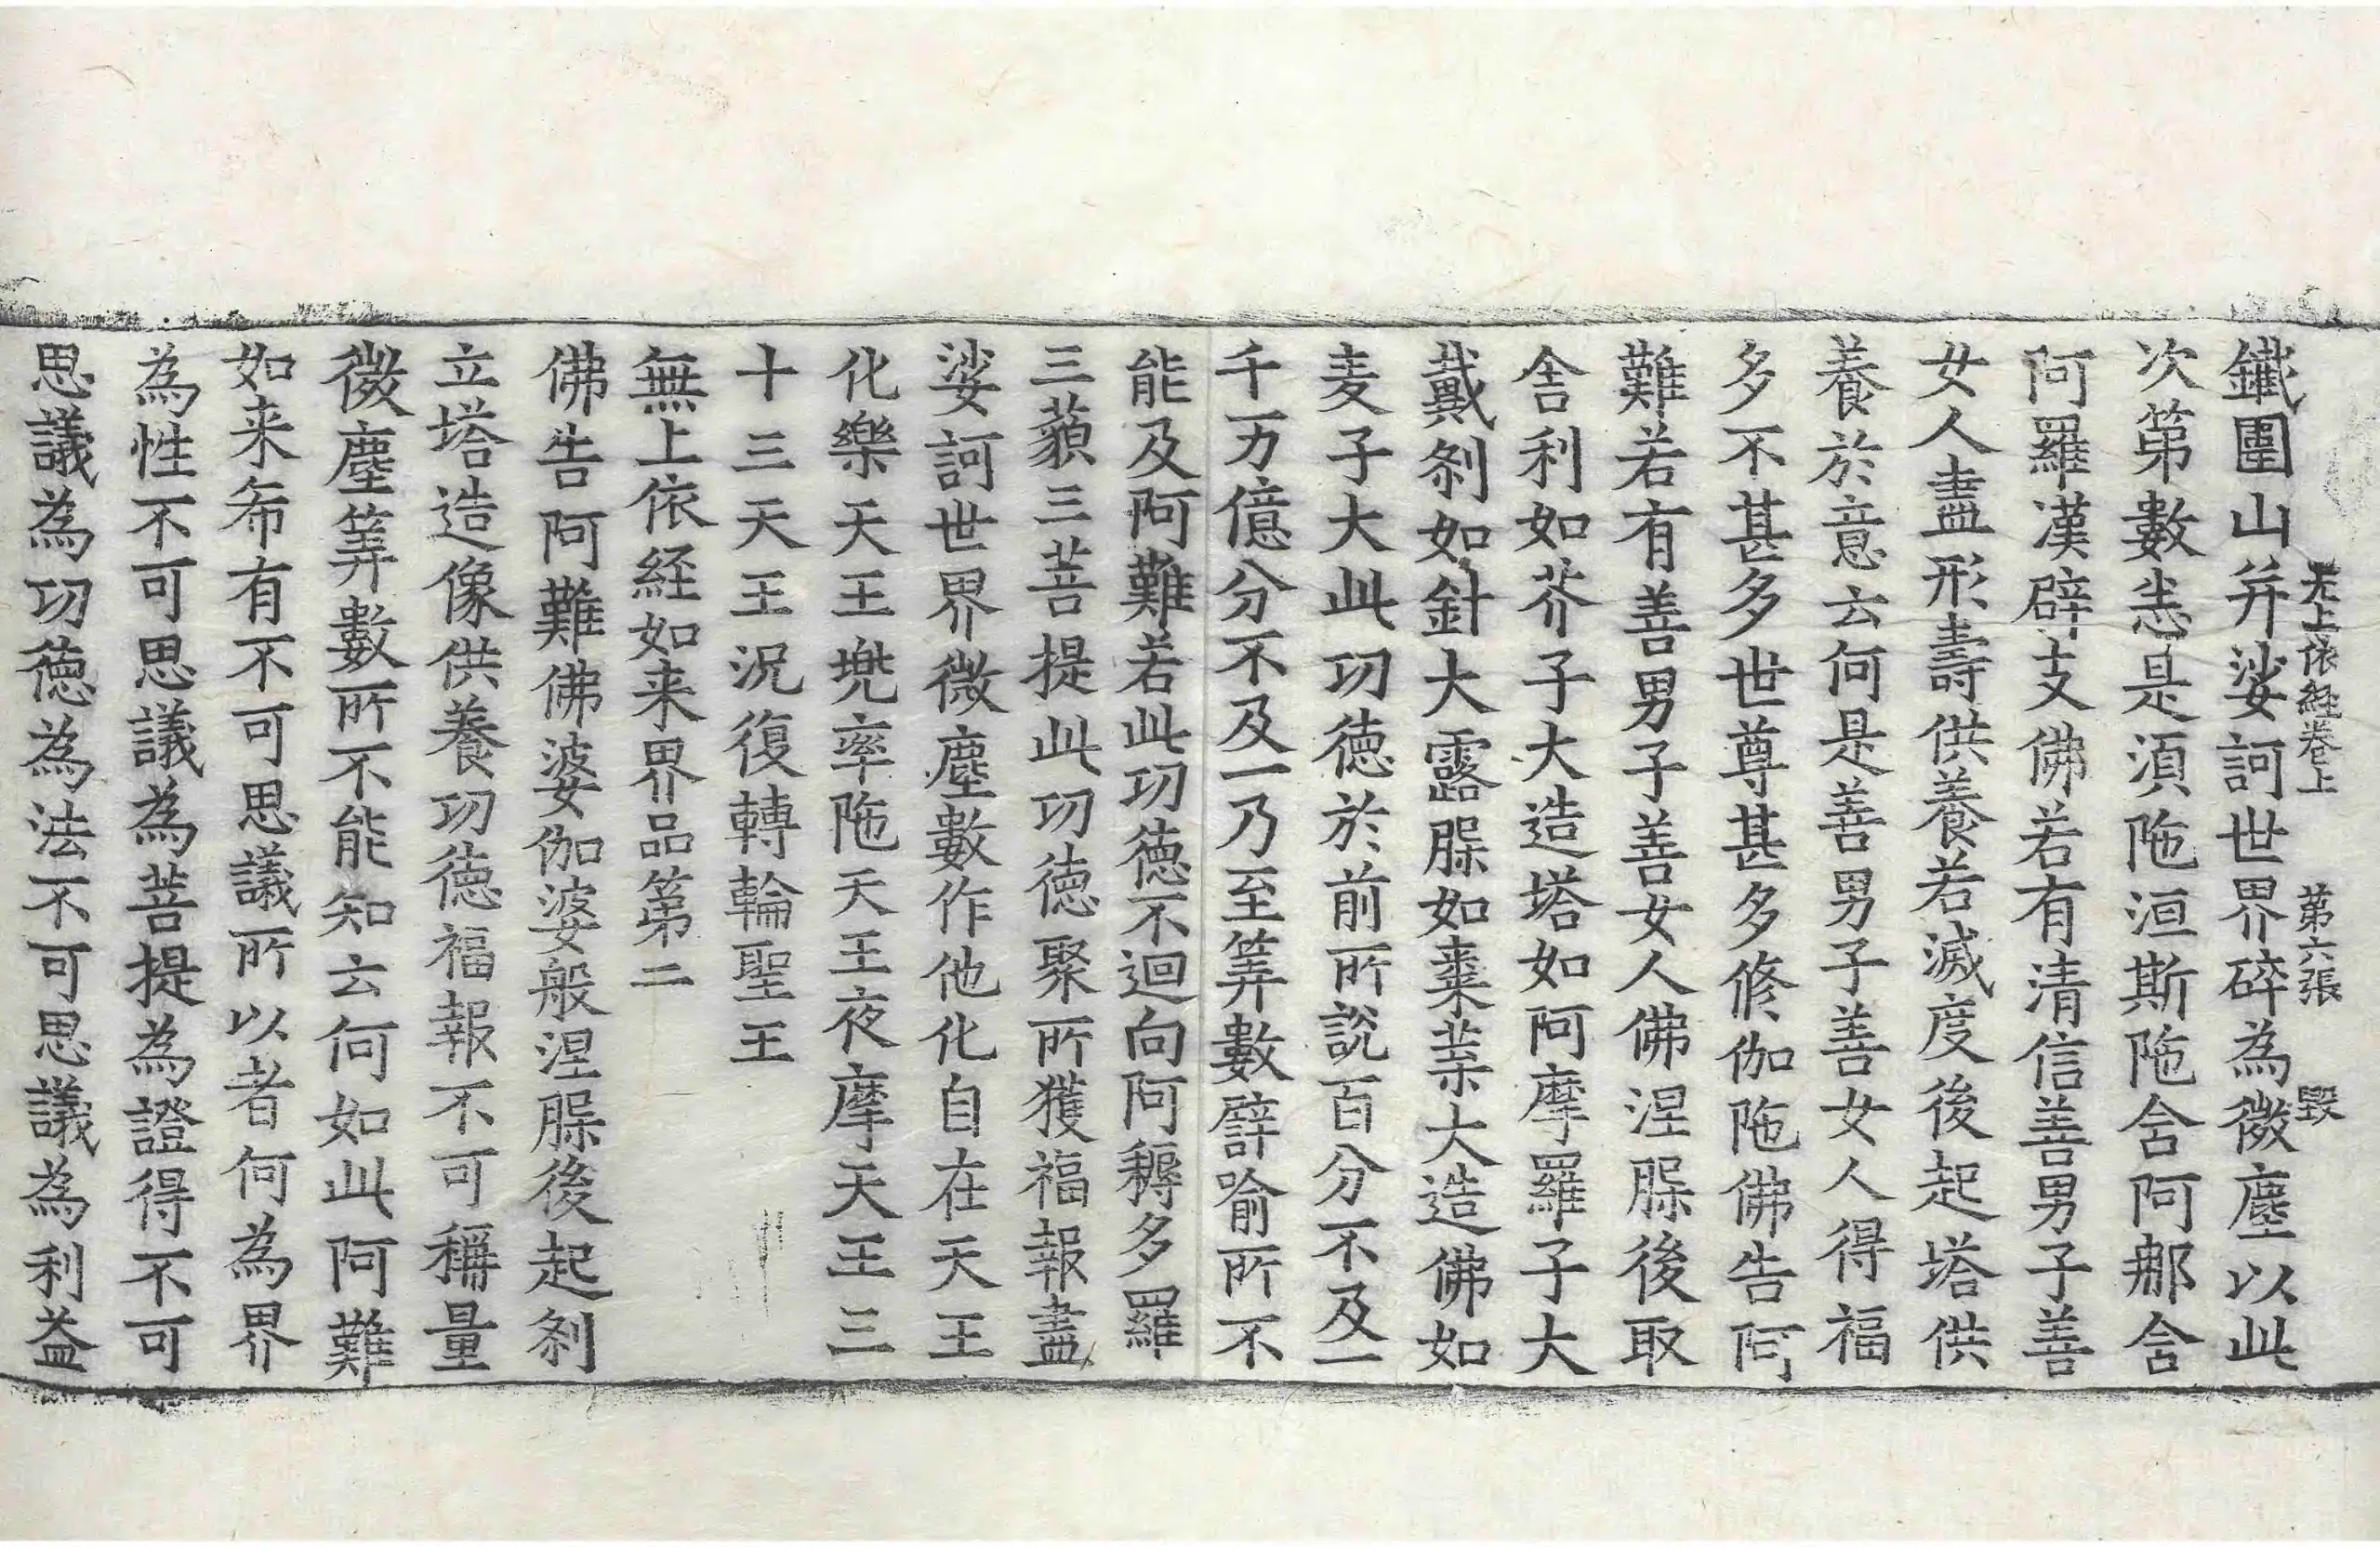 无上依経卷上 第六張 毀
鐵圍山并娑訶世界碎為微塵以此
次第數悉是須陁洹斯陁含阿那含
阿羅漢辟支佛若有清信善男子善
女人盡形壽供養若滅度後起塔供
養於意云何是善男子善女人得福
多不甚多世尊甚多修伽陁佛告阿
難若有善男子善女人佛涅脲後取
舍利如芥子大造塔如阿摩羅子大
戴刹如針大露脲如棗葉大造佛如
麦子大此功徳於前所說百分不及一
千万億分不及一乃至筭數譬喻所不
能及阿難若此功徳不迴向阿耨多羅
三藐三菩提此功徳聚所獲福報盡
娑訶世界微塵數作他化自在天王
化樂天王兠率陁天王夜摩天王三
十三天王況復轉輪聖王
無上依経如来界品第二
佛告阿難佛婆伽婆般涅脲後起刹
立塔造像供養功徳福報不可稱量
微塵筭數所不能知云何如此阿難
如来希有不可思議所以者何為界
為性不可思議為菩提為證得不可
思議為功徳為法不可思議為利益